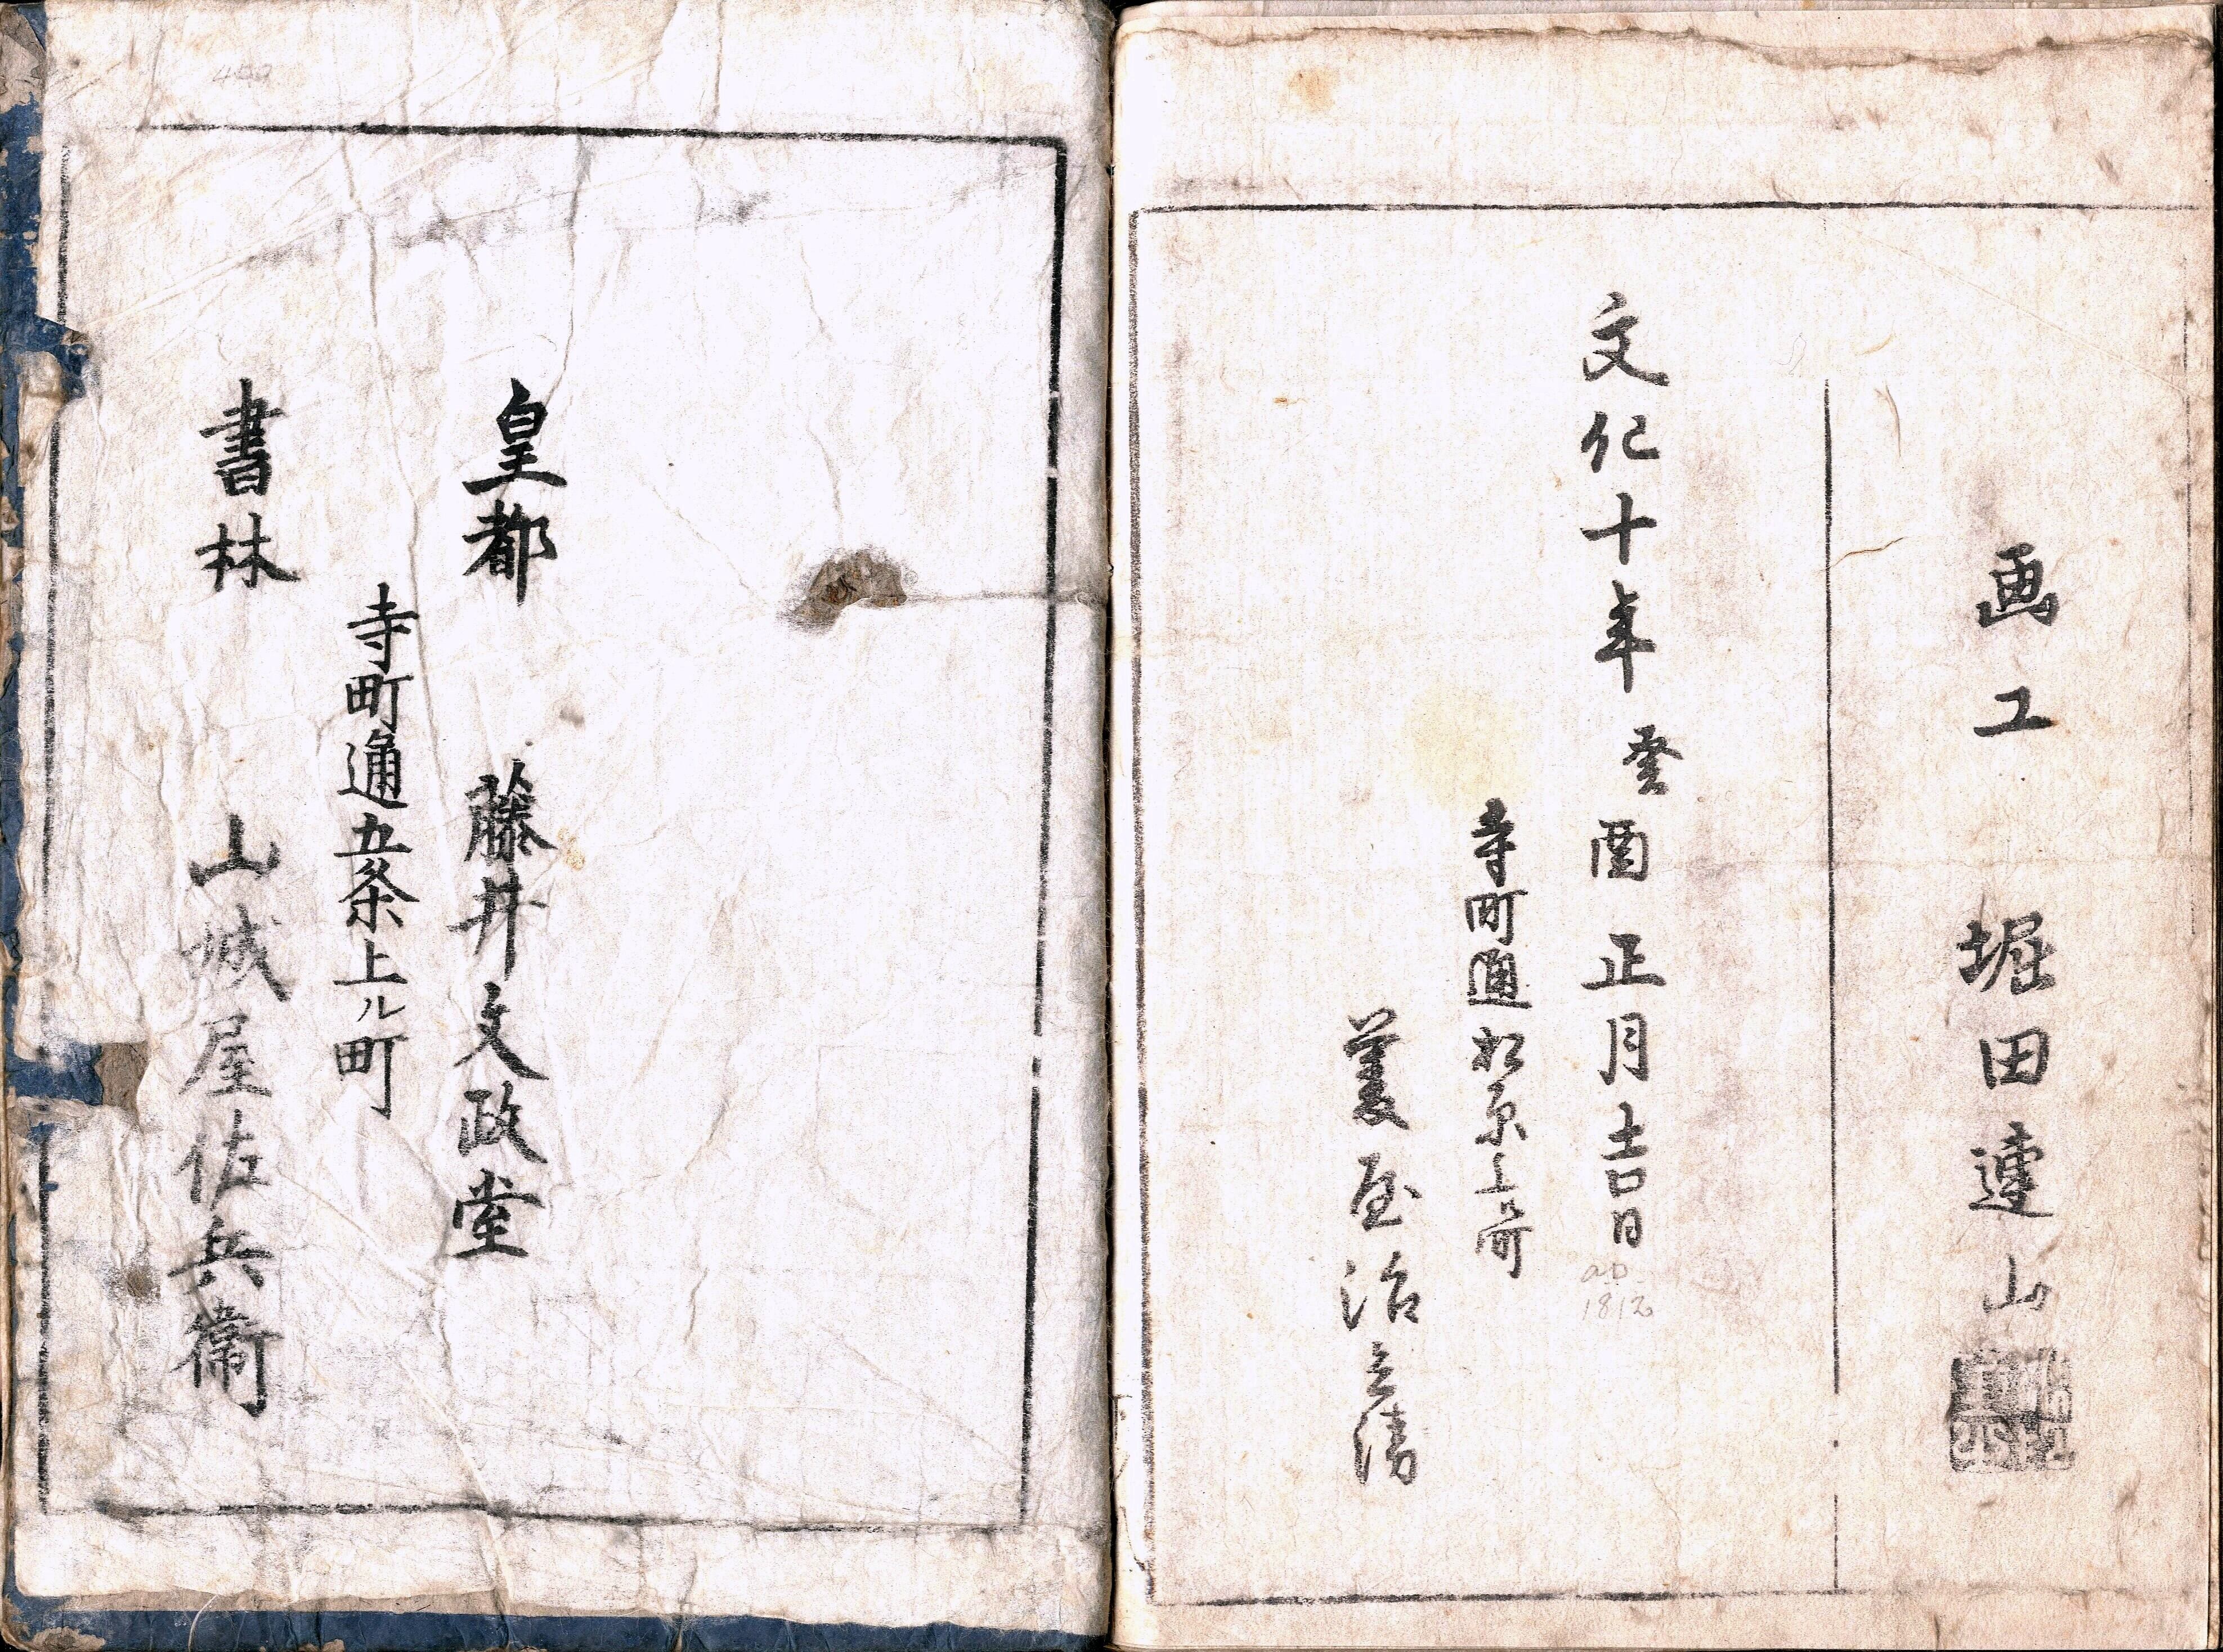 画工 堀田連山
文化十年癸酉正月吉日
a.D.
1812
寺町通松原上ル町
菱屋治兵衛
皇都 藤井文政堂
寺町通五条上ル町
書林 山城屋佐兵衛